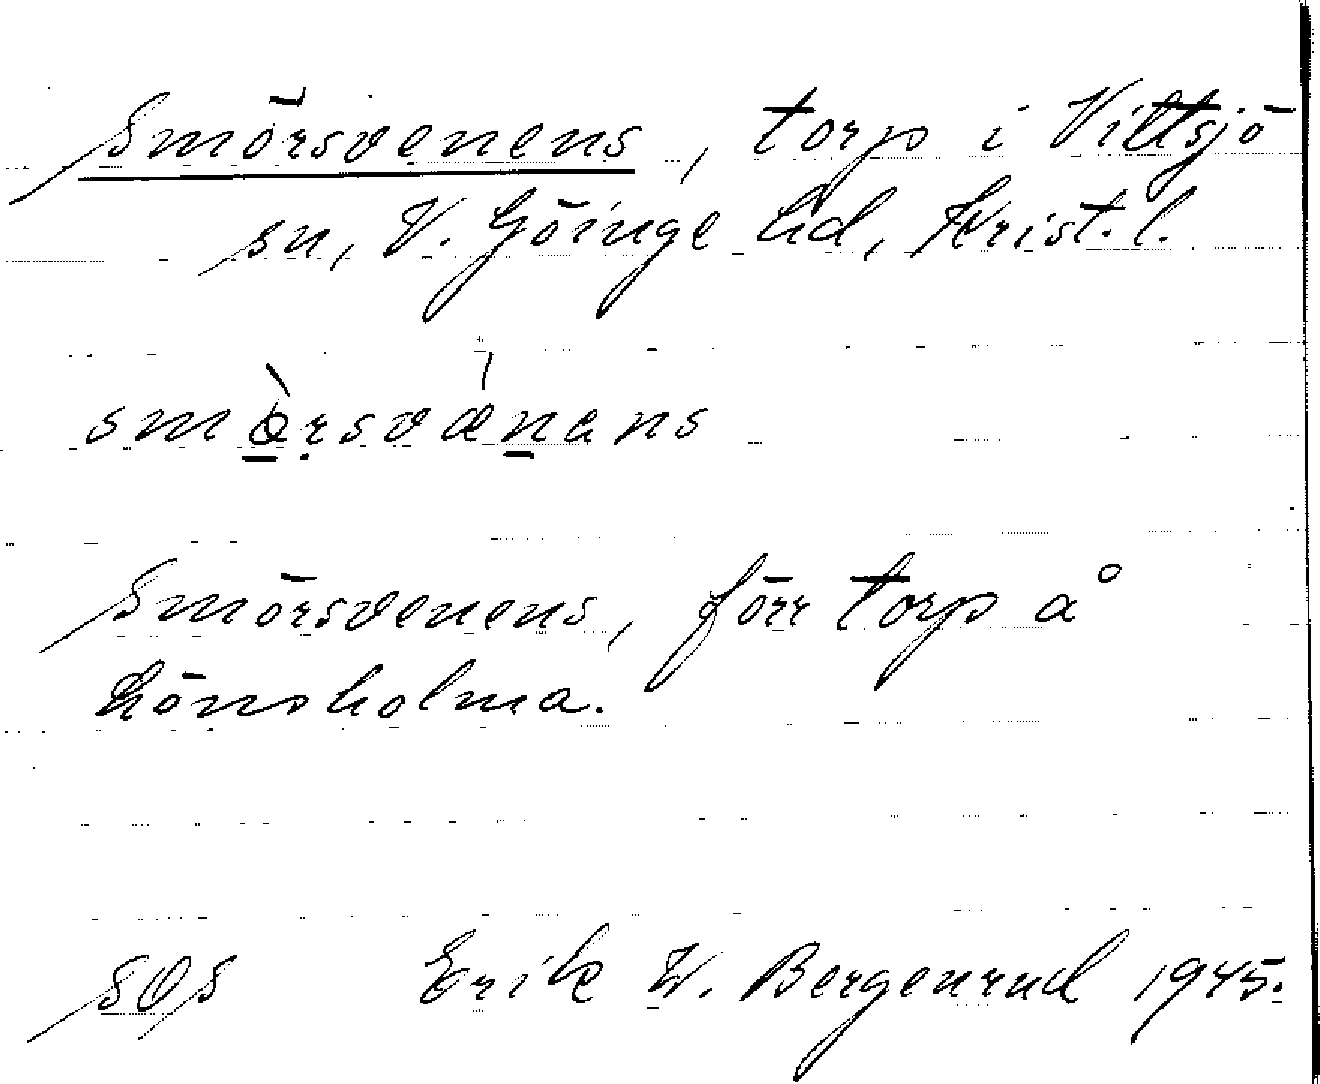 Smörsvenens, torp i Vittsjö
sn, V. Göinge hd, Krist. l.
smö̀rsvǽnans
Smörsvenens, förr torp å
hönsholma.
SOS Erik W. Bergenrud 1945.